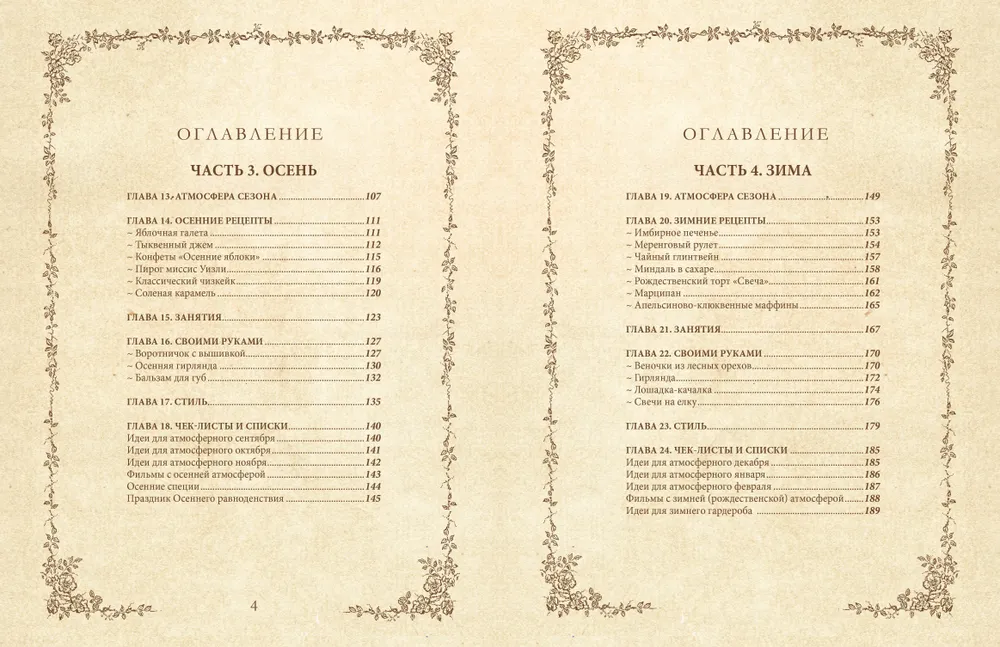 ОГЛАВЛЕНИЕ
ЧАСТЬ 3. ОСЕНЬ
ГЛАВА 13. АТМОСФЕРА СЕЗОНА 107
ГЛАВА 14. ОСЕННИЕ РЕЦЕПТЫ 111
~ Яблочная галета 111
~ Тыквенный джем 112
~ Конфеты «Осенние яблоки» 115
~ Пирог миссис Уизли 116
~ Классический чизкейк 119
~ Соленая карамель 120
ГЛАВА 15. ЗАНЯТИЯ 123
ГЛАВА 16. СВОИМИ РУКАМИ 127
~ Воротничок с вышивкой 127
~ Осенняя гирлянда 130
~ Бальзам для губ 132
ГЛАВА 17. СТИЛЬ 135
ГЛАВА 18. ЧЕК-ЛИСТЫ И СПИСКИ 140
Идеи для атмосферного сентября 140
Идеи для атмосферного октября 141
Идеи для атмосферного ноября 142
Фильмы с осенней атмосферой 143
Осенние специи 144
Праздник Осеннего равноденствия 145
4
ОГЛАВЛЕНИЕ
ЧАСТЬ 4. ЗИМА
ГЛАВА 19. АТМОСФЕРА СЕЗОНА 149
ГЛАВА 20. ЗИМНИЕ РЕЦЕПТЫ 153
~ Имбирное печенье 153
~ Меренговый рулет 154
~ Чайный глинтвейн 157
~ Миндаль в сахаре 158
~ Рождественский торт «Свеча» 161
~ Марципан 162
~ Апельсиново-клюквенные маффины 165
ГЛАВА 21. ЗАНЯТИЯ 167
ГЛАВА 22. СВОИМИ РУКАМИ 170
~ Веночки из лесных орехов 170
~ Гирлянда 172
~ Лошадка-качалка 174
~ Свечи на елку 176
ГЛАВА 23. СТИЛЬ 179
ГЛАВА 24. ЧЕК-ЛИСТЫ И СПИСКИ 185
Идеи для атмосферного декабря 185
Идеи для атмосферного января 186
Идеи для атмосферного февраля 187
Фильмы с зимней (рождественской) атмосферой 188
Идеи для зимнего гардероба 189